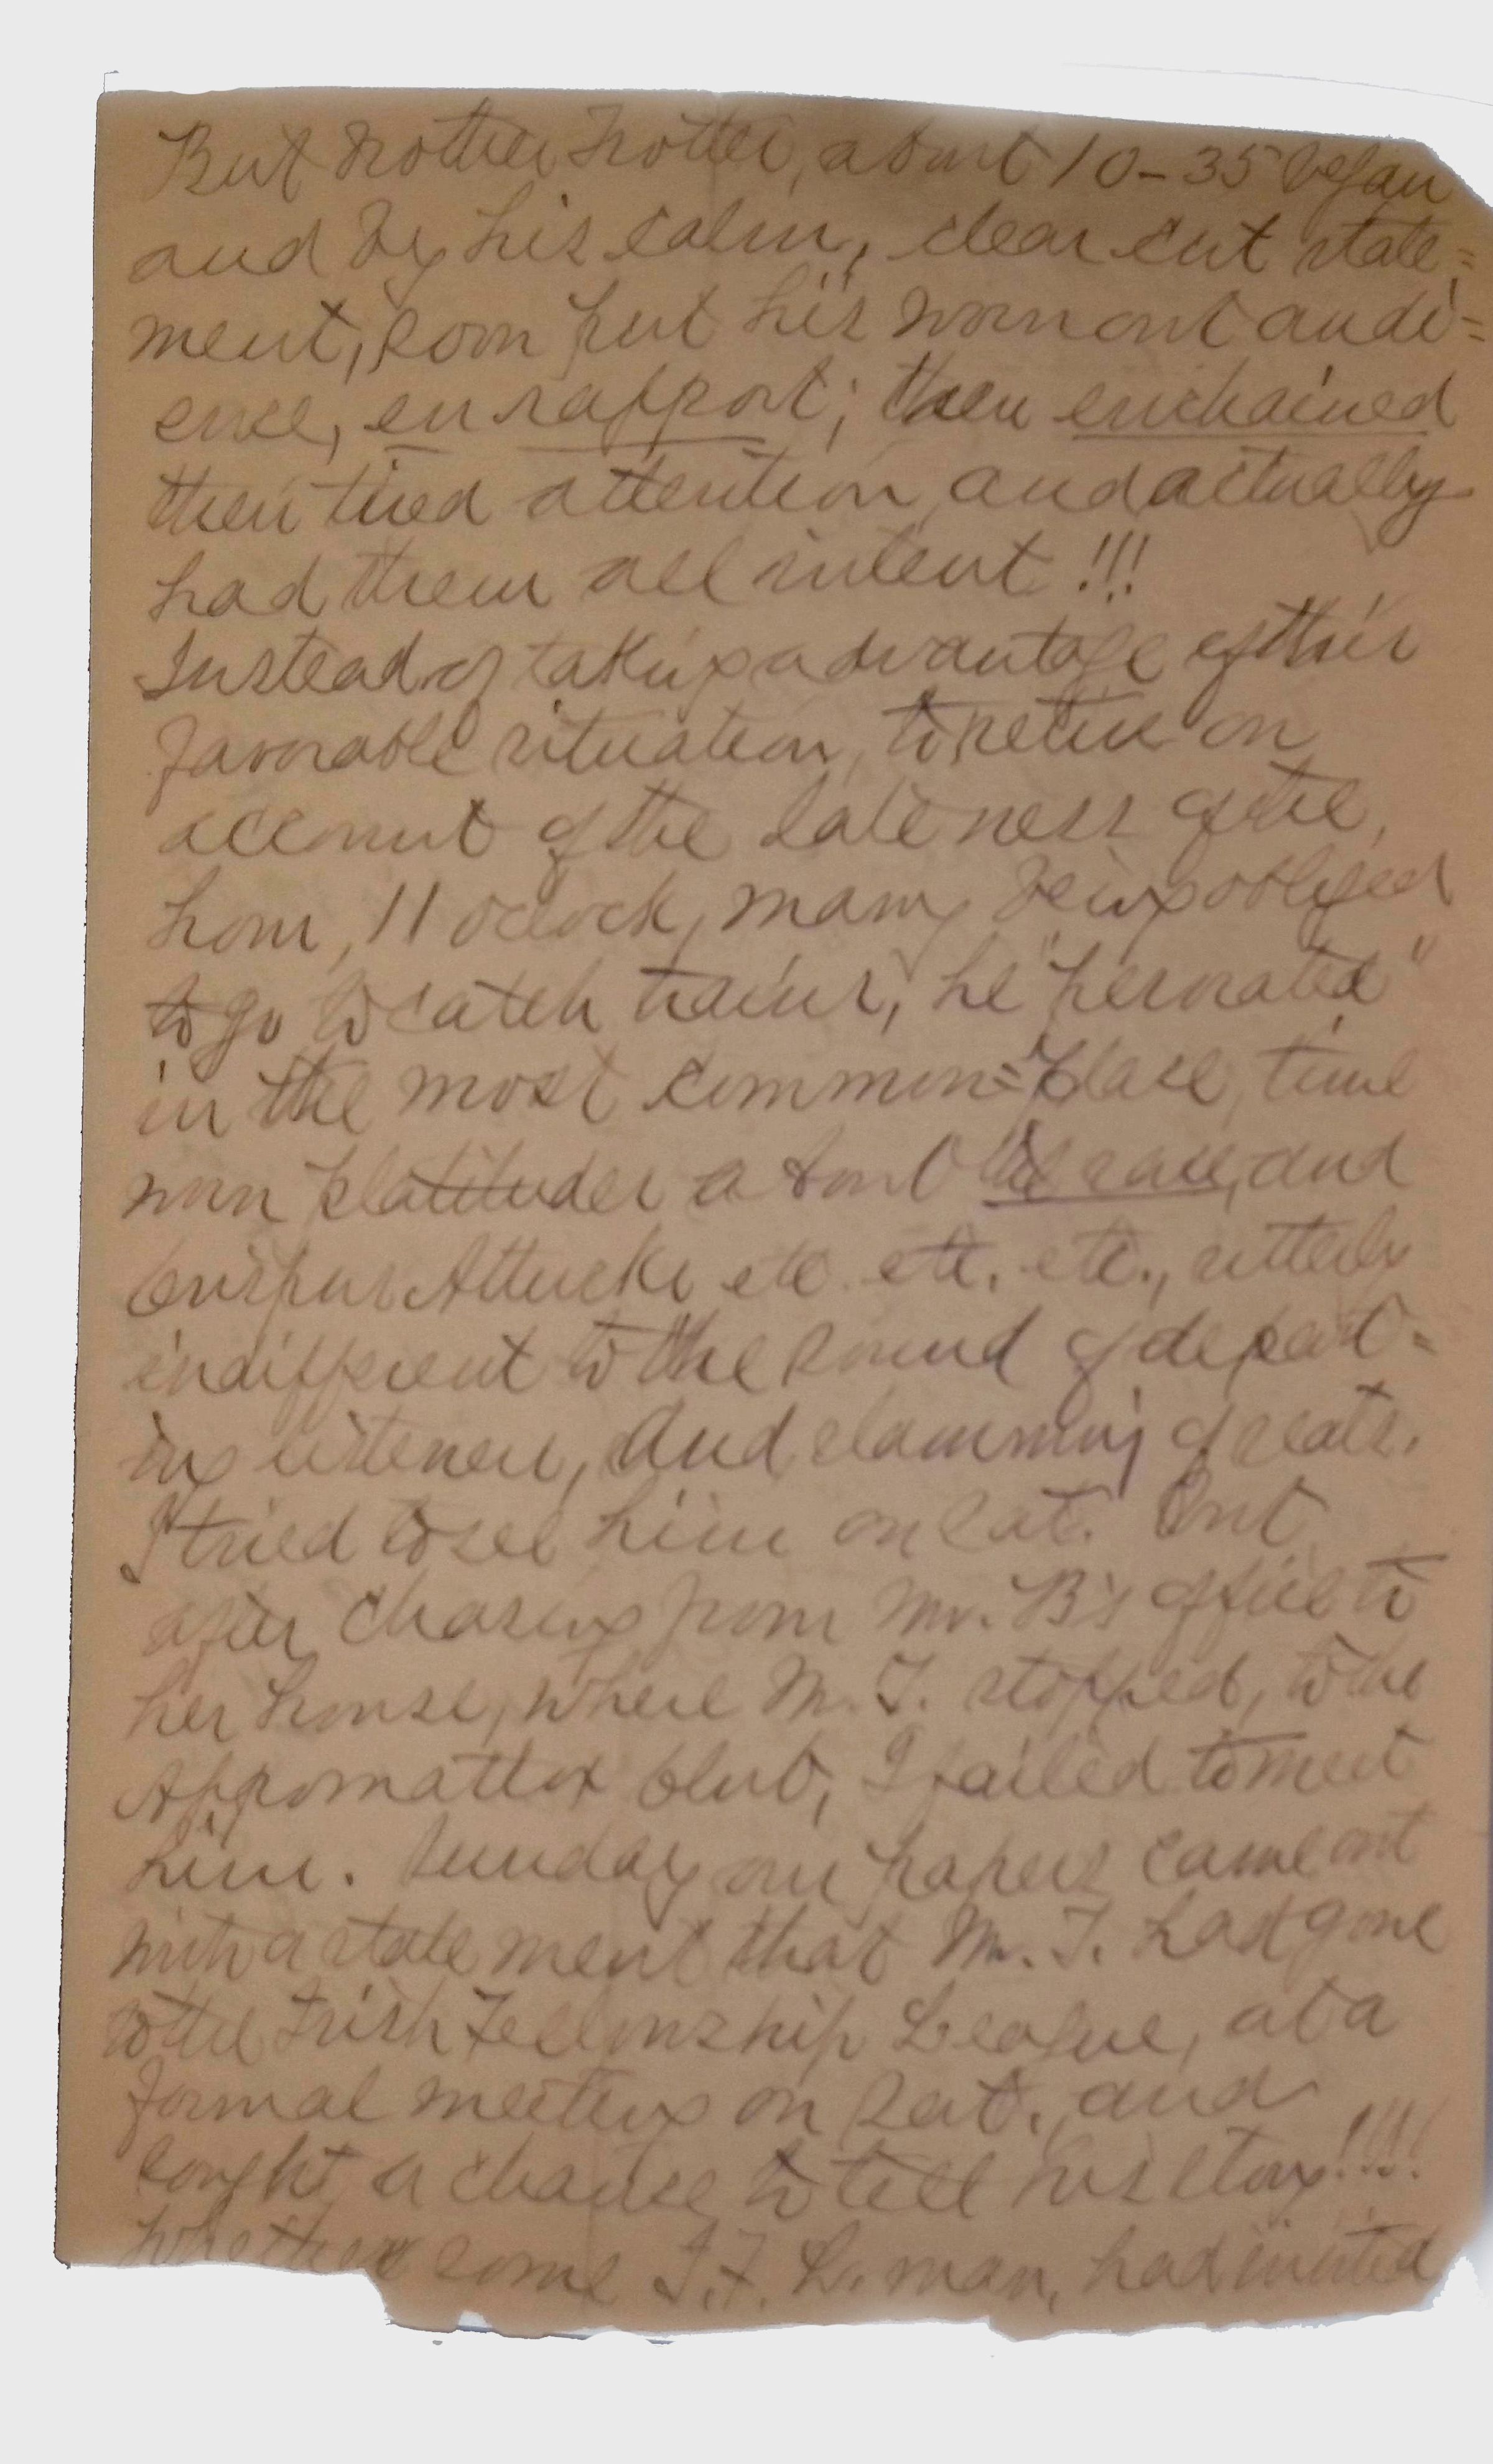 But Brother Trotter, about 10-35 began
and by his calm, clear cut state=
ment, soon put his worn out audi=
ence, en rapport; then enchained
their tired attention and actually
had them all intent!!!
Instead of taking advantage of this
favorable situation, to retire on
account of the lateness of the
hour, 11 oclock, many being obliged
to go to catch trains, he "perorated"
in the most common=place, time
worn platitudes about the race, and
Crispus Attucks etc. etc. etc., utterly
indifferent to the sound of depart=
ing listeners, and slamming of seats.
I tried to see him on Sat. But
after chasing from Mr. B's office to
her house, where M. T. stopped, to the
Appomattox Club, I failed to meet
him. Sunday our papers came out
with a statement that M. T. had gone
to the Irish Fellowship League, at a
formal meeting on Sat. and
sought a chance to tell his story!!!!
Whether some I. F. L. man, had invited